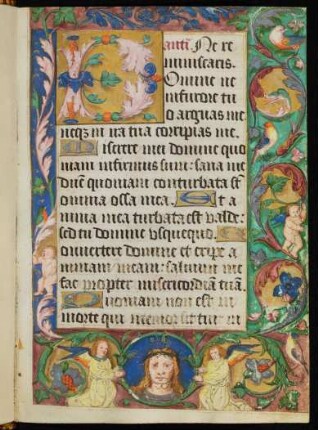 anti Ne re
miniscaris.
Domine ne
infurore tu
o arguas me
neqz in ira tua corripias me.
Miserere mei domine quo
niam infirmus sum: sana me
dne quoniam conturbata st
omnia ossa mea. Et a
nima mea turbata est valde:
sed tu domine vsquequo.
Conuertere domine et eripe a
nimam meam: saluum me
fac propter misericordiā tuā.
Quoniam non est in
morte qui memor sit tui: in